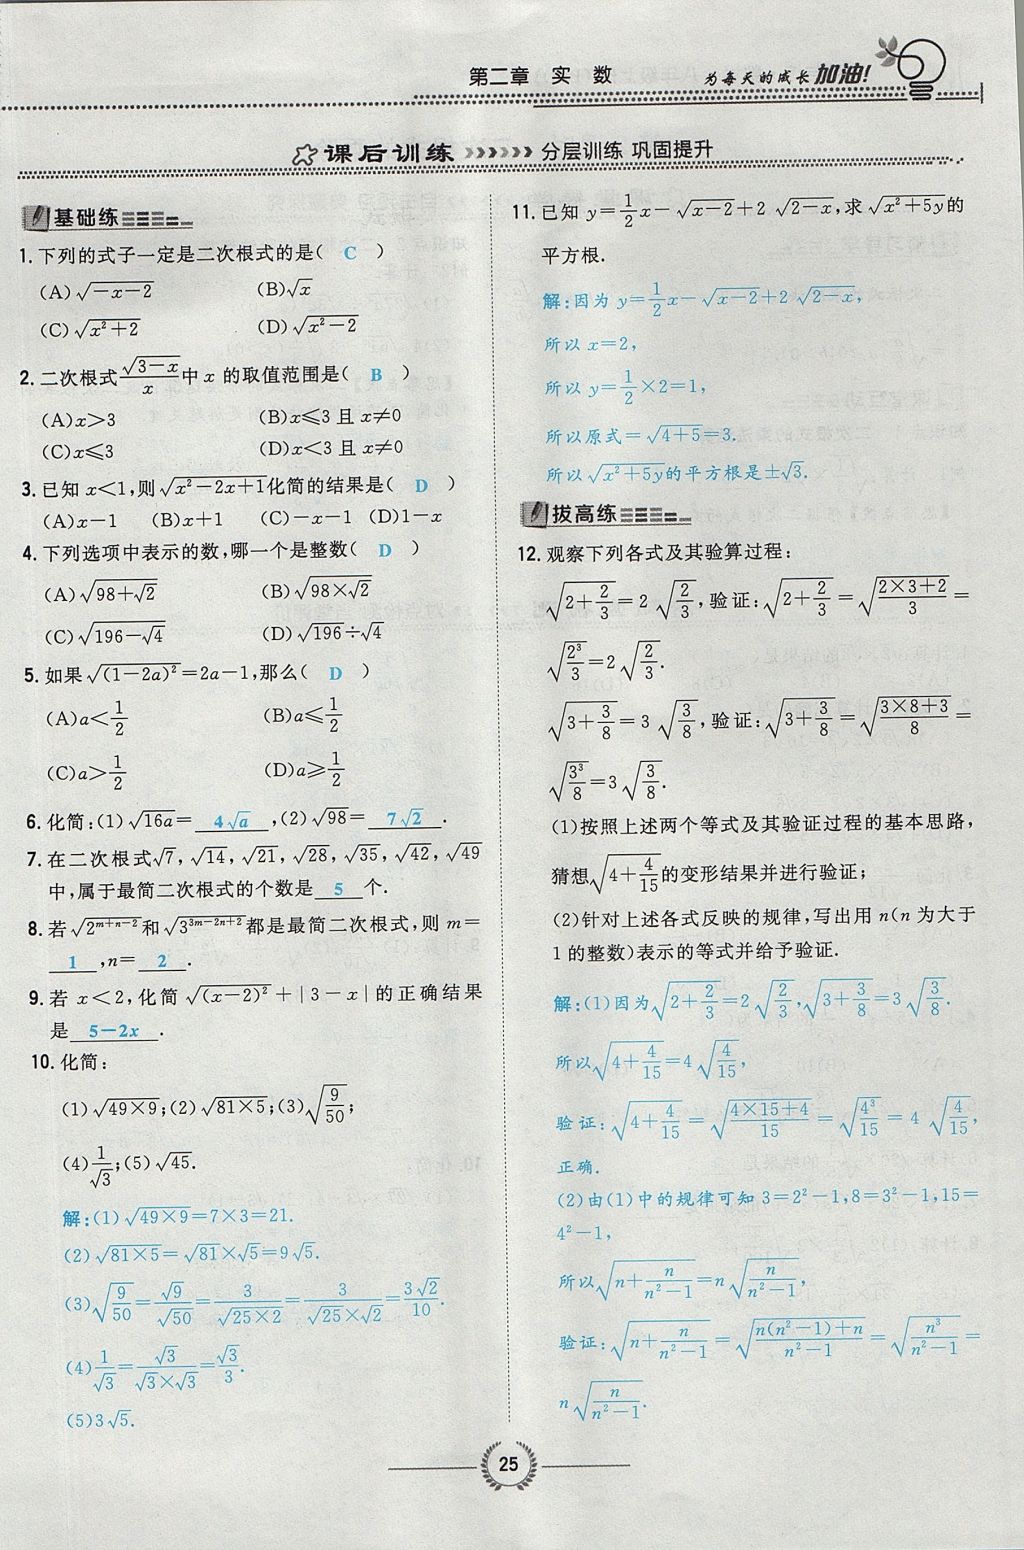 第二章 实 数
为每天的成长加油!
课后训练 分层训练 巩固提升
基础练
1.下列的式子一定是二次根式的是( C )
(A)√(-x-2) (B)√x
(C)√(x²+2) (D)√(x²-2)
2.二次根式√(3-x)/x中x的取值范围是( B )
(A)x>3 (B)x≤3且x≠0
(C)x≤3 (D)x<3且x≠0
3.已知x<1,则√(x²-2x+1)化简的结果是( D )
(A)x-1 (B)x+1 (C)-x-1 (D)1-x
4.下列选项中表示的数,哪一个是整数( D )
(A)√(98+√2) (B)√(98×√2)
(C)√(196-√4) (D)√196÷√4
5.如果√((1-2a)²)=2a-1,那么( D )
(A)a<1/2 (B)a≤1/2
(C)a>1/2 (D)a≥1/2
6.化简:(1)√(16a)=4√a,(2)√98=7√2.
7.在二次根式√7,√14,√21,√28,√35,√42,√49
中,属于最简二次根式的个数是 5 个.
8.若√(2^(m+n-2))和√(3^(3m-2n+2))都是最简二次根式,则m=
1,n=2.
9.若x<2,化简√((x-2)²)+|3-x|的正确结果
是 5-2x .
10.化简:
(1)√(49×9);(2)√(81×5);(3)√(9/50);
(4)1/√3;(5)√45.
解:(1)√(49×9)=7×3=21.
(2)√(81×5)=√81×√5=9√5.
(3)√(9/50)=√9/√50=3/√(25×2)=3/(√25×√2)=3√2/10.
(4)1/√3=√3/(√3×√3)=√3/3.
(5)3√5.
11.已知y=1/2x-√(x-2)+2√(2-x),求√(x²+5y)的
平方根.
解:因为y=1/2x-√(x-2)+2√(2-x),
所以x=2,
所以y=1/2×2=1,
所以原式=√(4+5)=3.
所以√(x²+5y)的平方根是±√3.
拔高练
12.观察下列各式及其验算过程:
√(2+2/3)=2√(2/3),验证:√(2+2/3)=√((2×3+2)/3)=
√(2³/3)=2√(2/3).
√(3+3/8)=3√(3/8),验证:√(3+3/8)=√((3×8+3)/8)=
√(3³/8)=3√(3/8).
(1)按照上述两个等式及其验证过程的基本思路,
猜想√(4+4/15)的变形结果并进行验证;
(2)针对上述各式反映的规律,写出用n(n为大于
1的整数)表示的等式并给予验证.
解:(1)因为√(2+2/3)=2√(2/3),√(3+3/8)=3√(3/8).
所以√(4+4/15)=4√(4/15),
验证:√(4+4/15)=√((4×15+4)/15)=√(4³/15)=4√(4/15),
正确.
(2)由(1)中的规律可知3=2²-1,8=3²-1,15=
4²-1,
所以√(n+n/(n²-1))=n√(n/(n²-1)),
验证:√(n+n/(n²-1))=√((n(n²-1)+n)/(n²-1))=√(n³/(n²-1))=
n√(n/(n²-1)).
25